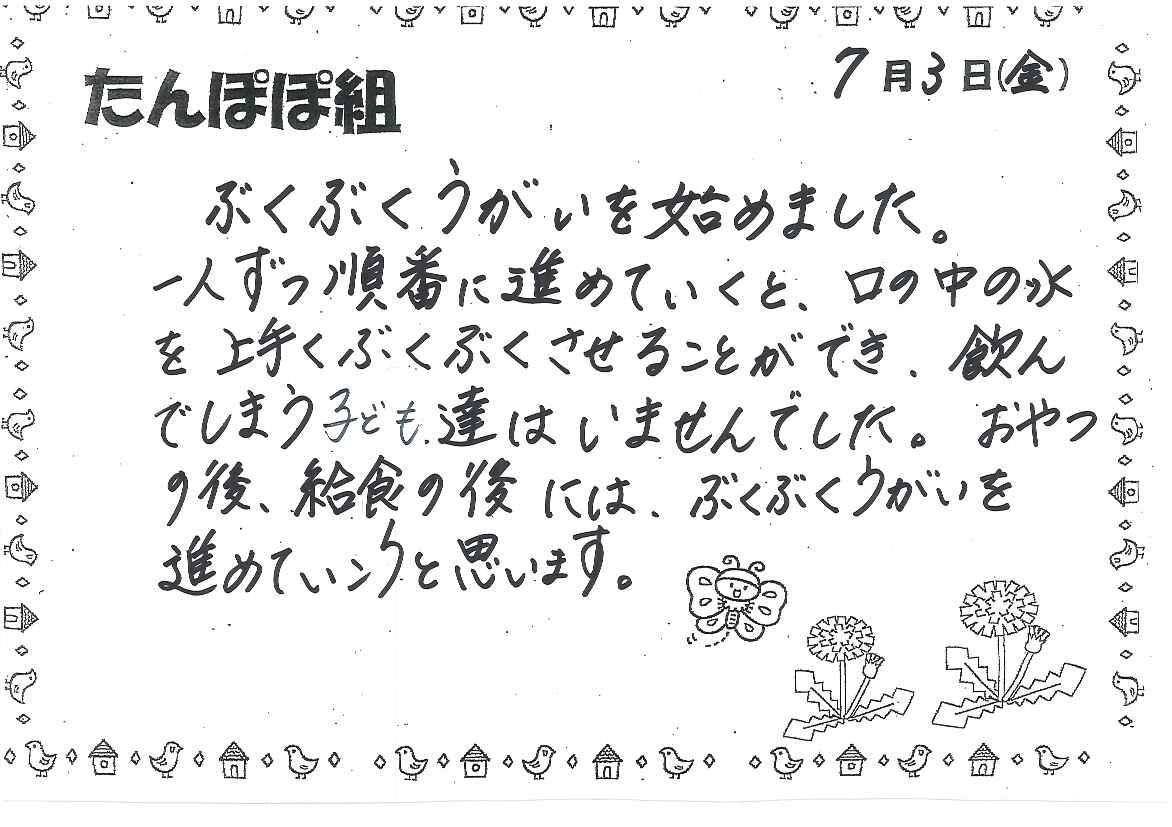 たんぽぽ組
7月3日(金)
ぶくぶくうがいを始めました。
一人ずつ順番に進めていくと、口の中の水
を上手くぶくぶくさせることができ、飲ん
でしまう子ども達はいませんでした。おやつ
の後、給食の後には、ぶくぶくうがいを
進めていこうと思います。